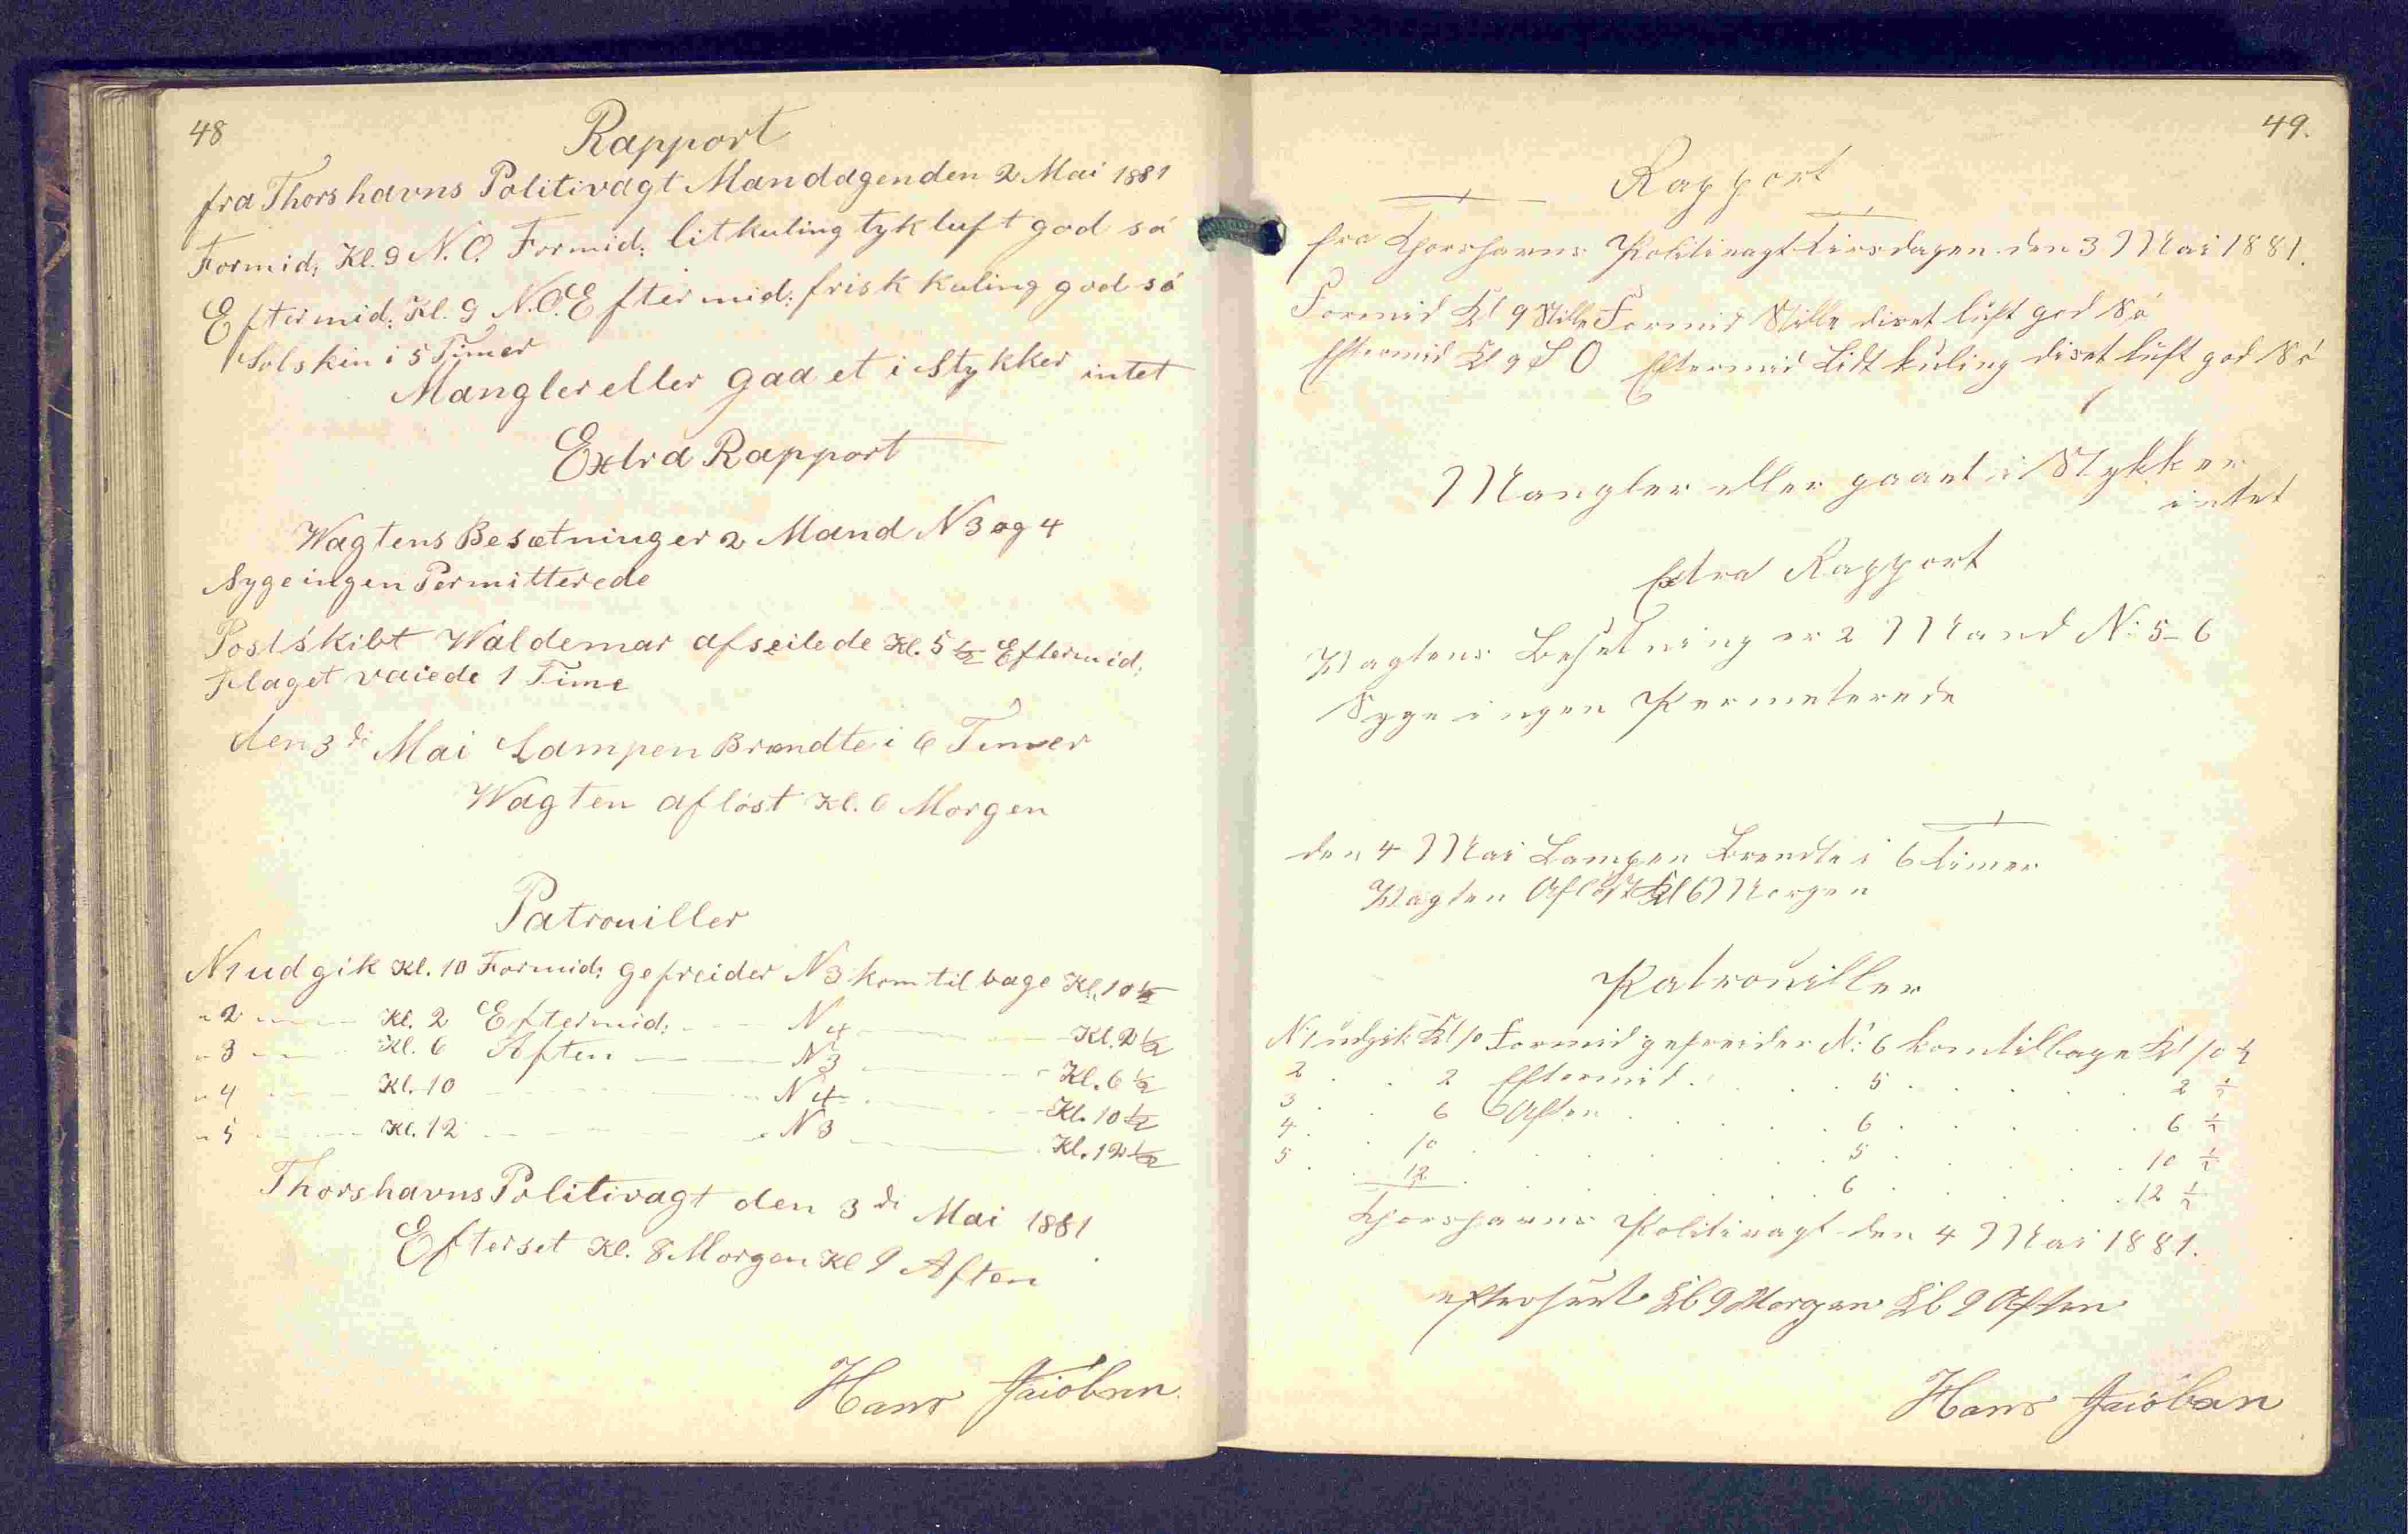 48
Rapport
fra Thorshavns Politivagt Mandagen den 2 Mai 1881
Formid: Kl. 9 N.O. Formid: litkuling tyk luft god só
Eftermid: Kl. 9 N.O. Eftermid: frisk kuling god só
Solskin i 5 Timer
Mangler eller gaaet i Stykker intet
Extra Rapport
Wagtens Besætning er 2 Mand N 3 og 4
Syge ingen Permitterede
Postskibt Waldemar afseilede Kl. 5 1/2 Eftermid:
Flaget vaiede 1 Time
den 3di Mai Lampen Brændte i 6 Timer
Wagten afløst Kl. 6 Morgen
Patrouiller
N 1 udgik Kl. 10 Formid: gefreider N 3 kom tilbage Kl. 10 1/2
" 2 — Kl. 2 Eftermid: — N 4 — Kl. 2 1/2
" 3 — Kl. 6 Aften — N 3 — Kl. 6 1/2
" 4 — Kl. 10 — N 4 — Kl. 10 1/2
" 5 — Kl. 12 — N 3 — Kl. 12 1/2
Thorshavns Politivagt den 3di Mai 1881
Efterset Kl. 8 Morgen Kl 9 Aften
Hans
49.
Rapport
fra Thorshavns Politivagt Tirsdagen den 3 Mai 1881.
Formid Kl 9 Stille Formid Stille diset luft god Só
Eftermid Kl 9 S O Eftermid Lidt kuling diset luft god Só
Mangler eller gaaet i Stykker
intet
Extra Rapport
Wagtens Besetning er 2 Mand N: 5–6
Syge ingen Permeterede
den 4 Mai Lampen Brendte i 6 Timer
Wagten Afløst Kl 6 Morgen
Patrouiller
N: 1 udgik Kl 10 Formid gefreider N: 6 kom tilbage Kl 10 1/2
2 . . 2 Eftermid . . 5 . . 2 1/2
3 . . 6 Aften . . 6 . . 6 1/2
4 . . 10 . . 5 . . 10 1/2
5 . . 12 . . 6 . . 12 1/2
Thorshavns Politivagt den 4 Mai 1881.
Kl 9 Morgen Kl 9 Aften
Hans